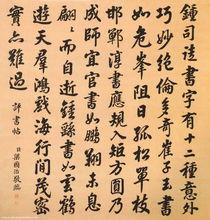 鍾司徒書字有十二種意外
巧妙絕倫多奇崔子玉書
如危峯阻日孤松單枝
邯鄲淳書應規入矩方圓乃
成師宜官書如鵬翔未息
翩翩而自逝鍾繇書如雲鵠
遊天群鴻戲海行間茂密
實亦難過 評書帖
臣梁國治敬臨